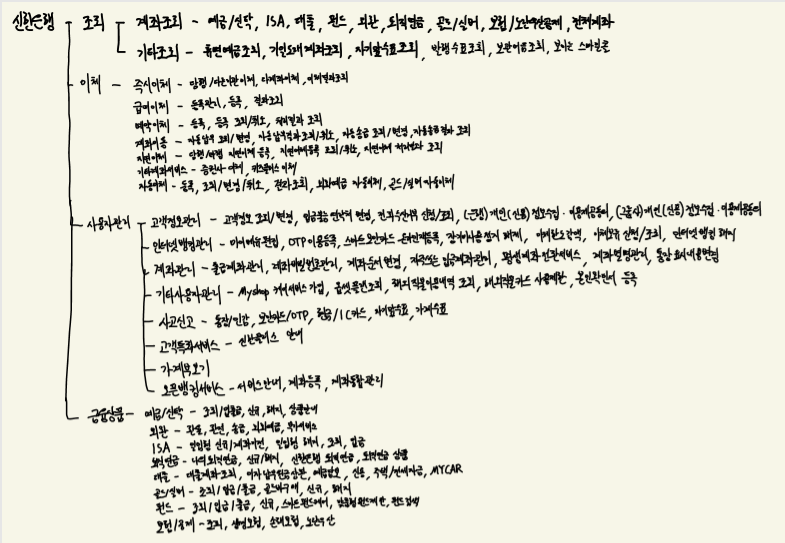 신한은행 조회 계좌조회 - 예금/신탁, ISA, 대출, 펀드, 외환, 퇴직연금, 골드/실버, 보험/노란우산공제, 전체계좌
기타조회 - 휴면예금조회, 거인도래계좌조회, 자기앞수표조회, 발행수표조회, 보관어음조회, 보이는 스마일콜
이체 - 즉시이체 - 당행/타은기관이체, 다계좌이체, 이체결과조회
급여이체 - 등록관리, 등록, 결과조회
예약이체 - 등록, 등록 조회/취소, 처리결과 조회
계좌이동 - 자동납부 조회/변경, 자동납부결과조회/취소, 자동송금 조회/변경, 자동송금결과 조회
지연이체 - 당행/타행 지연이체 등록, 지연이체등록 조회/취소, 지연이체 처리결과 조회
기타계좌서비스 - 증권사 이체,
자동이체 - 등록, 조회/변경/취소, 결과조회, 외화예금 자동이체, 골드/실버 자동이체
사용자관리 고객정보관리 - 고객정보 조회/변경, 입출금 연락처 변경, 전화수신거부 신청/조회, (은행) 개인(신용)정보수집·이용제공동의, (그룹사) 개인(신용)정보수집·이용제공동의
인터넷뱅킹관리 - 마이메뉴편집, OTP 이용등록, 스마트보안카드 온라인재등록, 장기미사용정지 해제, 이체한도감액, 이체한도 신청/조회, 인터넷 뱅킹 해지
계좌관리 - 출금계좌관리, 계좌비밀번호관리, 계좌순서 변경, 자주쓰는 입금계좌관리, 평생계좌 연관서비스, 계좌별명관리, 통장 표시내용변경
기타사용자관리 - Myshop 케어서비스 가입, 골드뱅킹조회, 해외직불이용내역 조회, 해외직불카드 사용제한, 본인확인서 등록
사고신고 - 통장/인감, 보안카드/OTP, 현금/IC카드, 자기앞수표, 가계수표
고객특화서비스 - 신한플러스 안내
가계부보기
오픈뱅킹서비스 - 서비스안내, 계좌등록, 계좌통합관리
금융상품 - 예금/신탁 - 조회/입출금, 신규, 해지, 상품안내
외환 - 환율, 환전, 송금, 외화예금, 부가서비스
ISA - 일임형 신규/계좌이전, 일임형 해지, 조회, 입금
퇴직연금 - 나의퇴직연금, 신규/해지, 신한은행 퇴직연금, 퇴직연금 상품
대출 - 대출계좌조회, 이자납부원금상환, 예금담보, 신용, 주택/전세자금, MYCAR
골드/실버 - 조회/입금/출금, 골드바구매, 신규, 해지
펀드 - 조회/입금/출금, 신규, 스마트펀드케어, 맞춤형펀드제안, 펀드검색
보험/공제 - 조회, 생명보험, 손해보험, 노란우산